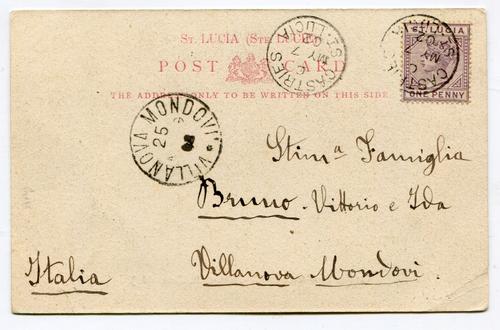 ST. LUCIA (STE LUCIE)
POST CARD
THE ADDRESS ONLY TO BE WRITTEN ON THIS SIDE
CASTRIES
C
MY 7
02
ST. LUCIA
ST. LUCIA
ONE PENNY
CASTRIES
C
MY 7
02
ST. LUCIA
VILLANOVA MONDOVI'
25
Stimª Famiglia
Bruno Vittorio e Ida
Villanova Mondovi.
Italia